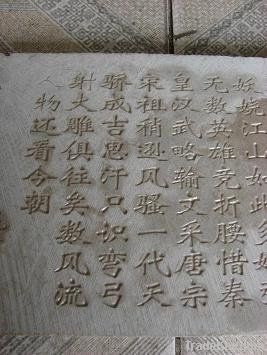 妖娆江山如此多娇引
无数英雄竞折腰惜秦
皇汉武略输文采唐宗
宋祖稍逊风骚一代天
骄成吉思汗只识弯弓
射大雕俱往矣数风流
人物还看今朝